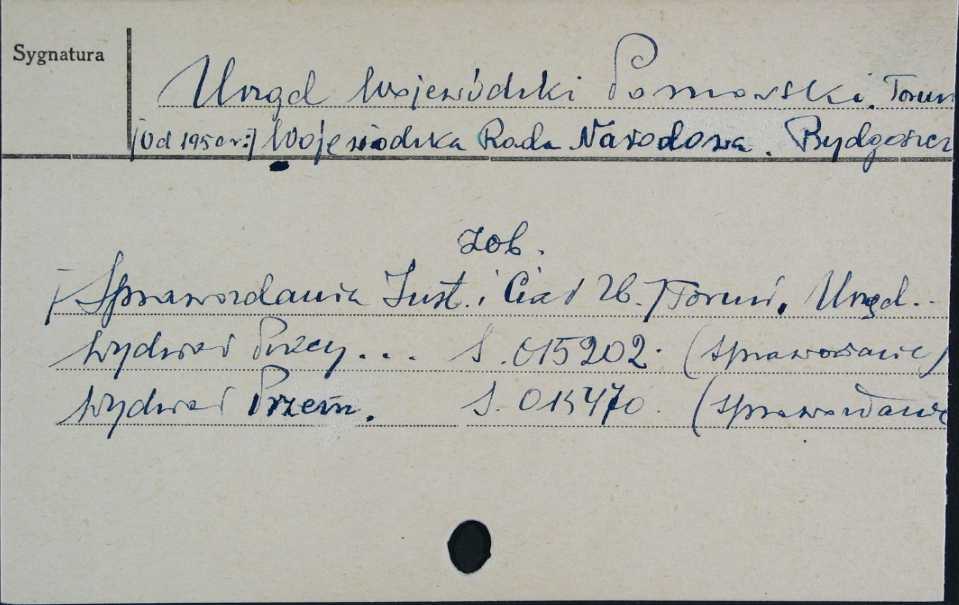 Sygnatura
Urząd Wojewódzki Pomorski. Toruń
[Od 1950 r:] Wojewódzka Rada Narodowa. Bydgoszcz
zob.
[Sprawozdania Inst. i Ciał Zb.] Toruń, Urząd..
Wydział Przem... S. 015202. (Sprawozdanie)
Wydział Przem. S. 015470. (Sprawozdanie